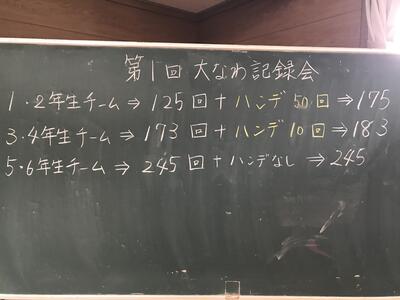 第1回 大なわ記録会
1・2年生チーム ⇒ 125回 + ハンデ 50回 ⇒ 175
3・4年生チーム ⇒ 173回 + ハンデ 10回 ⇒ 183
5・6年生チーム ⇒ 245回 + ハンデなし ⇒ 245